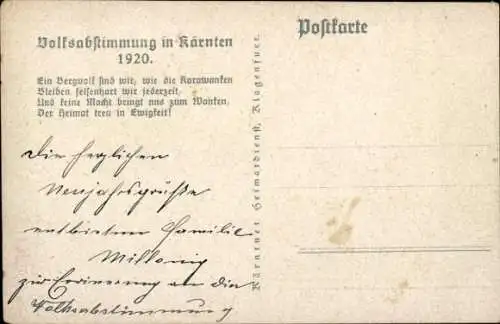 Volksabstimmung in Kärnten
1920.
Ein Bergvolk sind wir, wie die Karawanken
Bleiben felsenhart wir jederzeit,
Und keine Macht bringt uns zum Wanken,
Der Heimat treu in Ewigkeit!
Die herzlichen
Neujahrsgrüße
entbietem Familie
Millonig
zur Erinnerung an die
Volksabstimmung
Kärntner Heimatdienst, Klagenfurt.
Postkarte